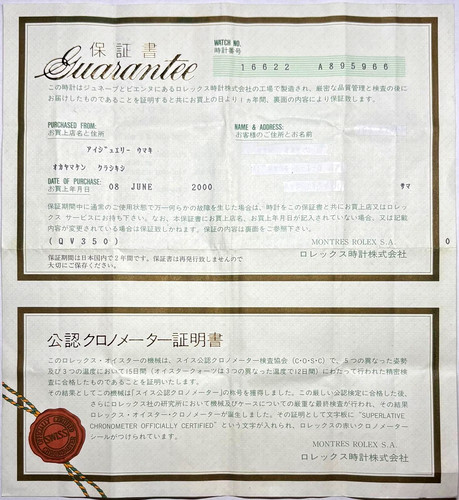 保証書
Guarantee
WATCH NO.
時計番号
16622 A895966
この時計はジュネーブとビエンヌにあるロレックス時計株式会社の工場で製造され、厳密な品質管理と検査の後に
お届けしたものであることを証明すると共にお買上の日より1ヶ年間、裏面の内容により保証致します。
PURCHASED FROM:
お買上店名と住所
NAME & ADDRESS:
お客様のご住所とお名前
アイジュエリー ウマキ
オカヤマケン クラシキシ
DATE OF PURCHASE:
お買上年月日
08 JUNE 2000
サマ
保証期間中に通常のご使用状態で万一何らかの故障を生じた場合は、時計をこの保証書と共にお買上店又はロレッ
クス サービスにお持ち下さい。なお、本保証書にお買上店名、お買上年月日が記入されていない場合、又は記載
内容が変更されている場合は保証致しかねます。保証の内容は裏面をご参照下さい。
(QV350)
MONTRES ROLEX S.A.
0
ロレックス時計株式会社
保証期間は日本国内で2年間です。保証書は再発行致しませんので
大切にご保存ください。
公認クロノメーター証明書
このロレックス・オイスターの機械は、スイス公認クロノメーター検査協会(C・O・S・C)で、5つの異なった姿勢
及び3つの温度において15日間(オイスタークォーツは3つの異なった温度で12日間)にわたって行われた精密検
査に合格したものであることを証明いたします。
その結果としてこの機械は「スイス公認クロノメーター」の称号を獲得しました。この厳しい公認検定に合格した後、
さらにロレックス社の研究所において機械及びケースについての厳重な最終検査が行われ、その結果
ロレックス・オイスター・クロノメーターが誕生しました。その証明として文字板に "SUPERLATIVE
CHRONOMETER OFFICIALLY CERTIFIED" という文字が入れられ、ロレックスの赤いクロノメーター
シールがつけられています。
MONTRES ROLEX S.A.
ロレックス時計株式会社
SWISS